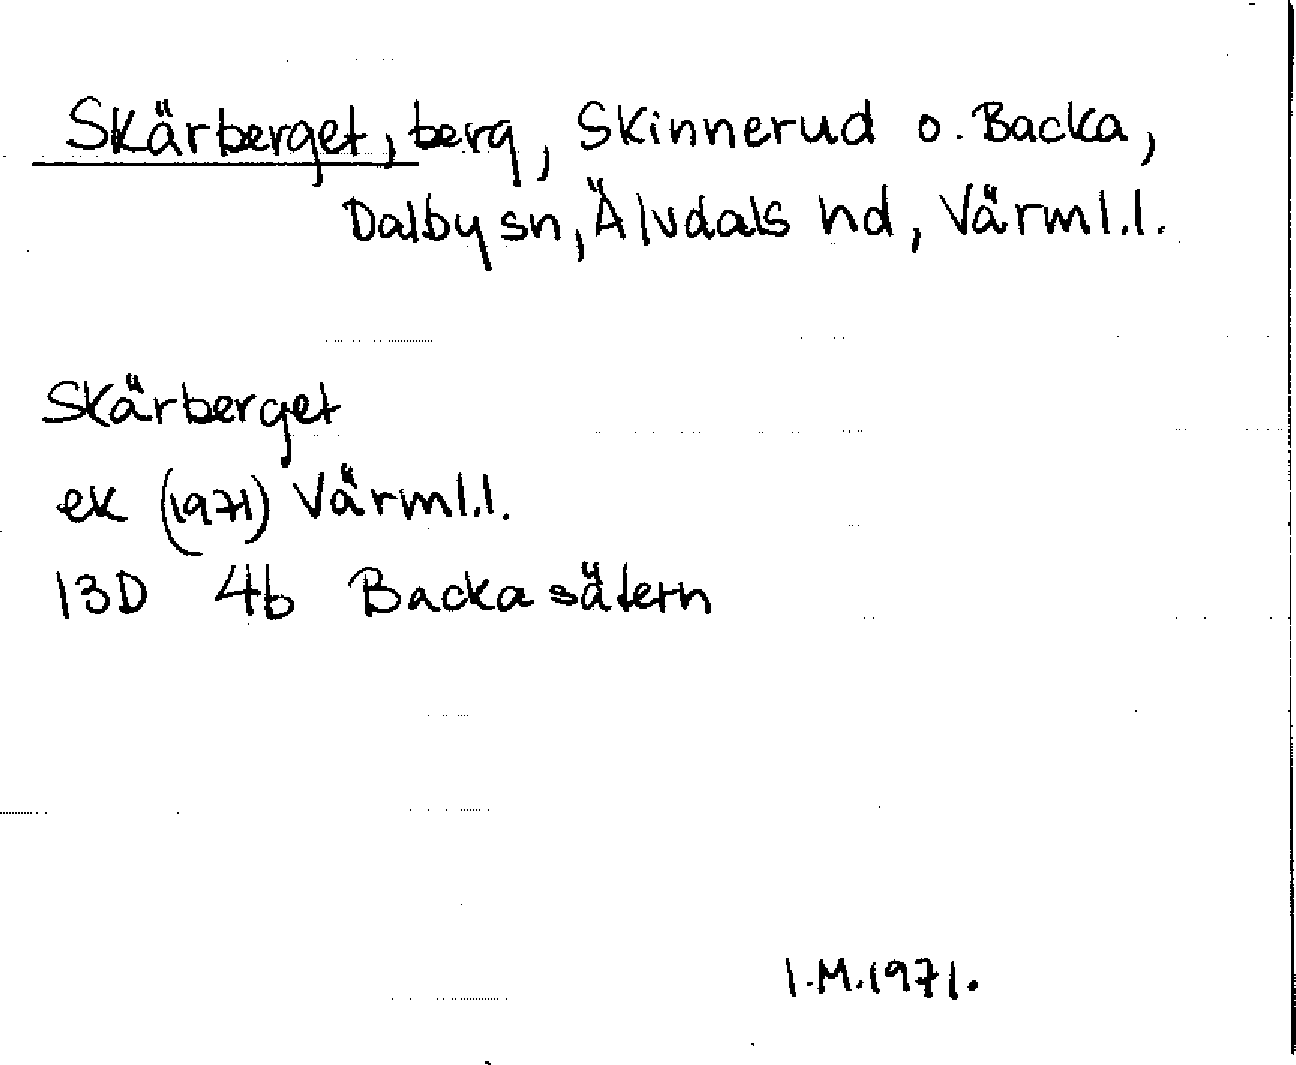 Skärberget, berg, Skinnerud o. Backa,
Dalby sn, Älvdals hd, Värml.l.
Skärberget
ek (1971) Värml.l.
13D 4b Backasätern
I.M.1971.